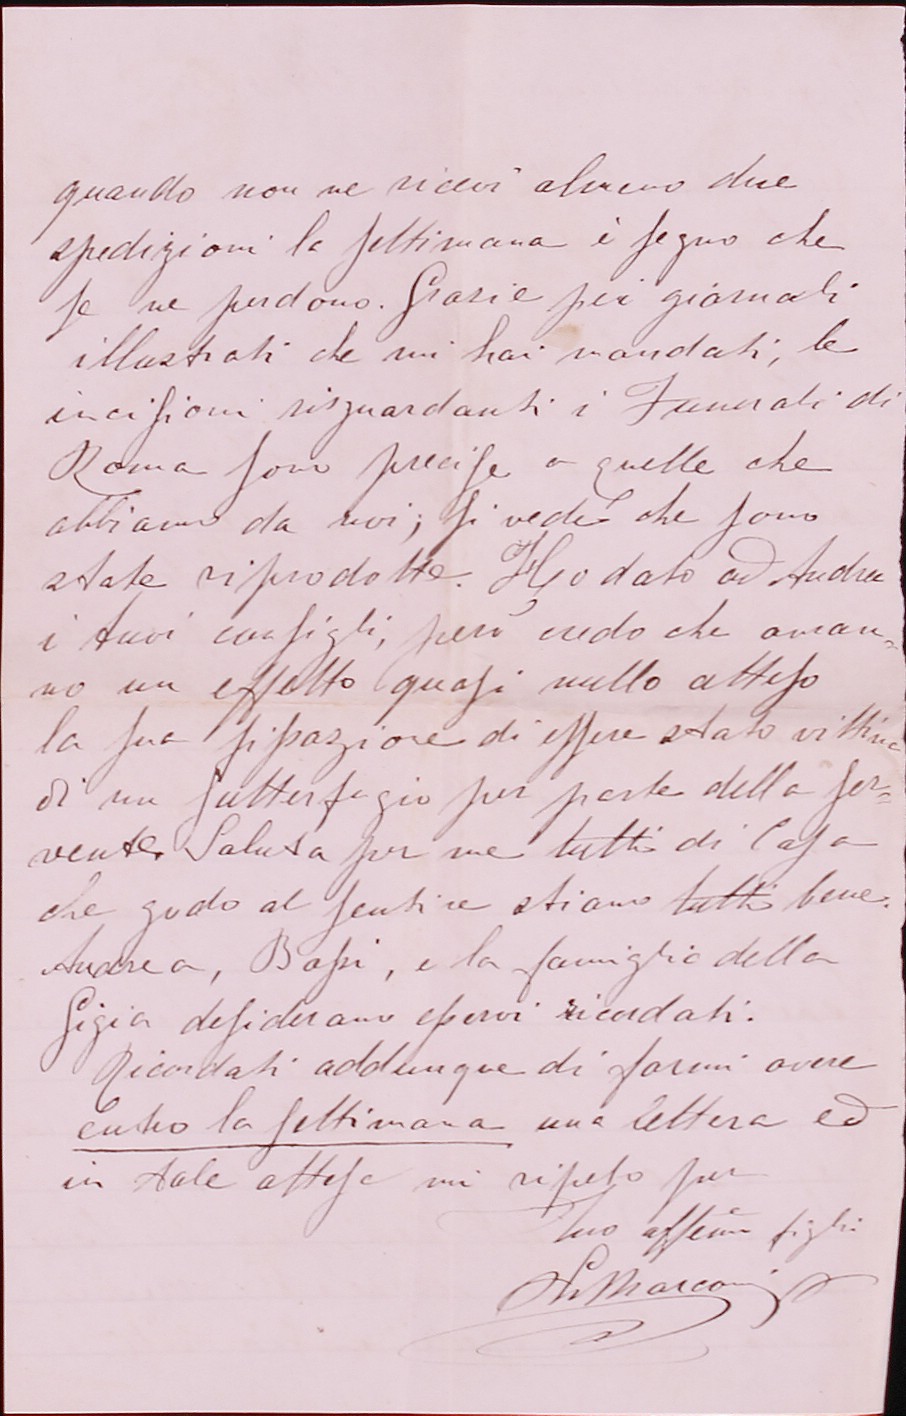 quando non ne ricevi almeno due
spedizioni la settimana è segno che
se ne perdono. Grazie pei giornali
illustrati che mi hai mandati, le
incisioni risguardanti i Funerali di
Roma sono precise a quelle che
abbiamo da noi; si vede che sono
state riprodotte. Ho dato ad Andrea
i tuoi consigli, però credo che avran-
no un effetto quasi nullo atteso
la sua fissazione di essere stato vittima
di un sutterfugio per parte della ser=
vente. Saluta per me tutti di Casa
che godo al sentire stiano tutti bene.
Andrea, Bassi, e la famiglia della
Gigia desiderano esservi ricordati.
Ricordati addunque di farmi avere
entro la settimana una lettera ed
in tale attesa mi ripeto per
Tuo affemo figlio
Marconi